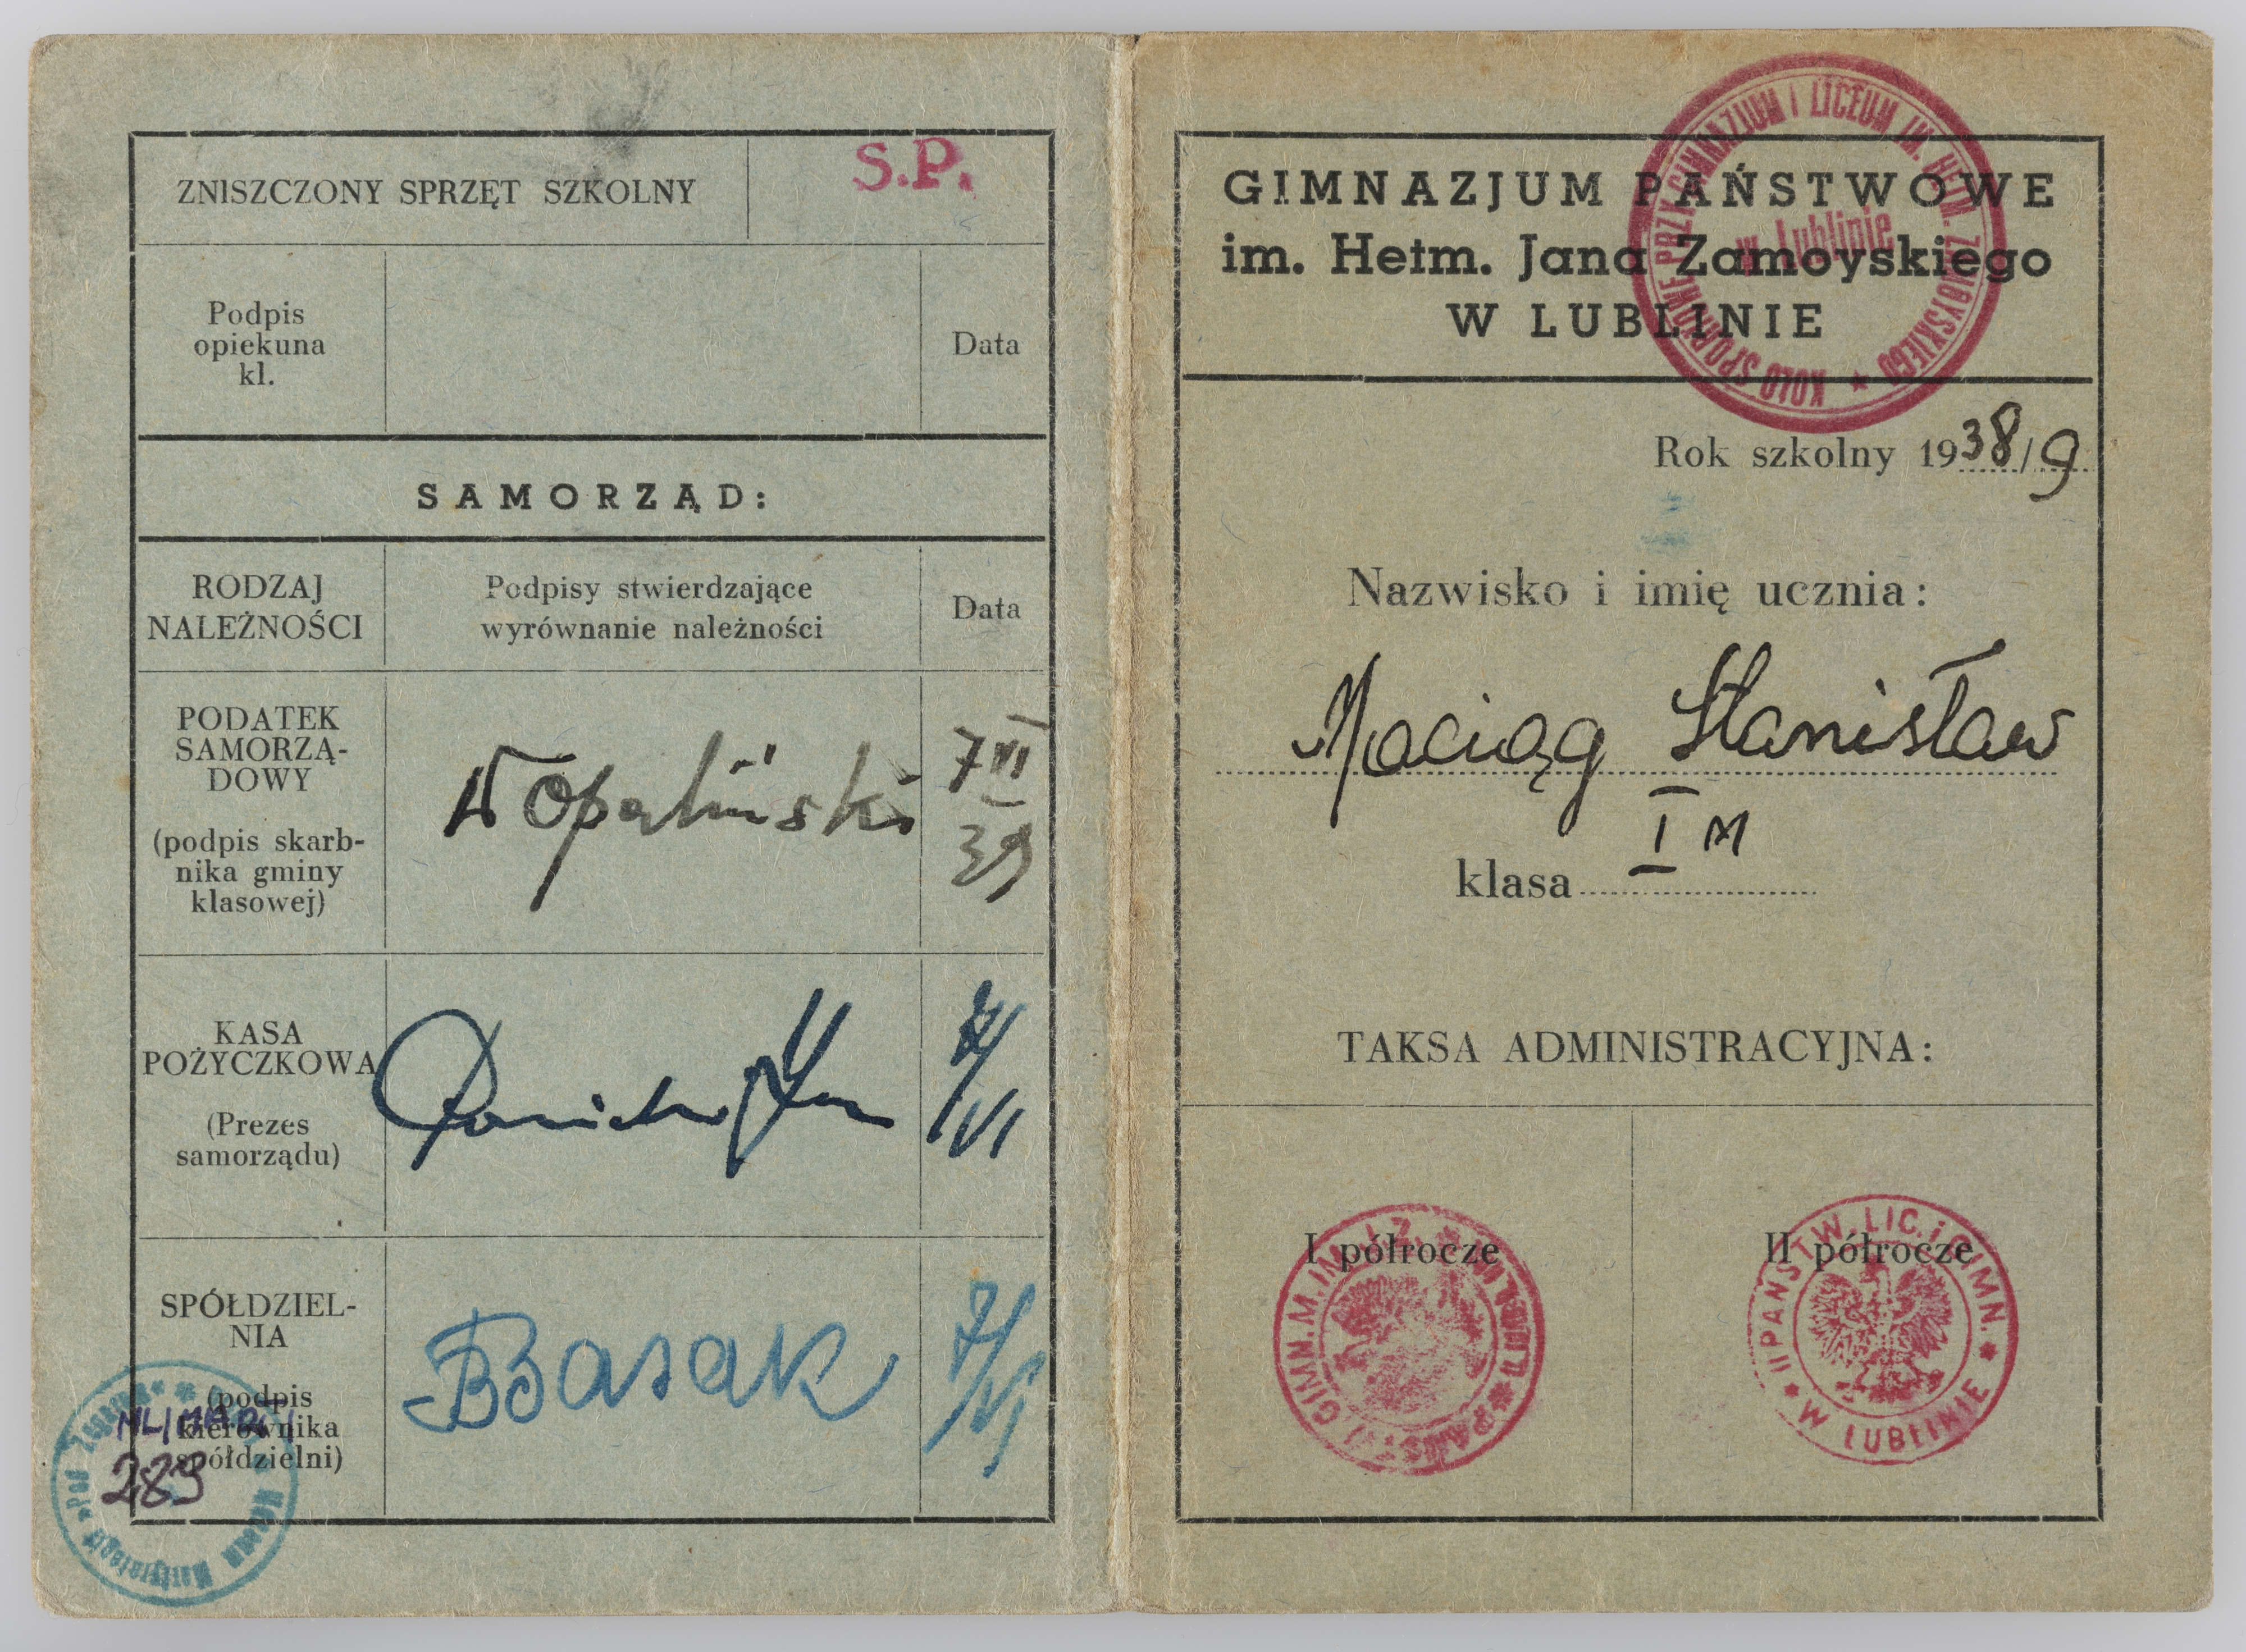 ZNISZCZONY SPRZĘT SZKOLNY
S.P.
Podpis
opiekuna
kl.
Data
SAMORZĄD:
RODZAJ
NALEŻNOŚCI
Podpisy stwierdzające
wyrównanie należności
Data
PODATEK
SAMORZĄ-
DOWY
(podpis skarb-
nika gminy
klasowej)
WOpaliński
7 VI
39
KASA
POŻYCZKOWA
(Prezes
samorządu)
VI
SPÓŁDZIEL-
NIA
(podpis
kierownika
spółdzielni)
Basak
7/VI
ML/MAR/
289
Muzeum Martyrologii "Pod Zegarem"
GIMNAZJUM PAŃSTWOWE
im. Hetm. Jana Zamoyskiego
W LUBLINIE
KOŁO SPORTOWE PRZY GIMNAZJUM I LICEUM IM. HETM. ZAMOYSKIEGO
w Lublinie
Rok szkolny 1938/9
Nazwisko i imię ucznia:
Maciąg Stanisław
I M
klasa
TAKSA ADMINISTRACYJNA:
I półrocze
II półrocze
II PAŃSTW. LIC. i GIMN.
W LUBLINIE